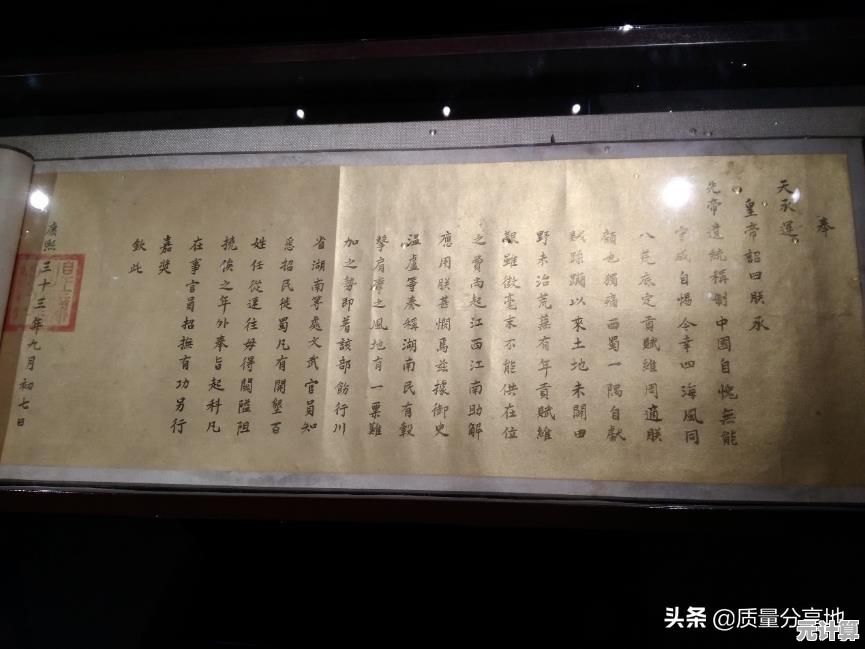 奉
天承運
皇帝詔曰朕承
先帝遺統稱制中國自愧無能
守成自惕今幸四海風同
八荒底定貢賦維周適朕
顏也獨痛西蜀一隅自獻
賊蹂躪以來土地未闢田
野未治荒蕪有年貢賦維
艱雖徵毫末不能供在位
之費尚起江西江南助解
應用朕甚憫焉茲據御史
溫盧等奏稱湖南民有穀
擊肩摩之風地有一粟難
加之勢即著該部飭行川
省湖南等處文武官員知
悉招民徙蜀凡有開墾百
姓任從通往毋得關隘阻
撓俟之年外奉旨起科凡
在事官員招撫有功另行
嘉獎
欽此
康熙三十三年九月初七日
头条 @质量分享地
元计算